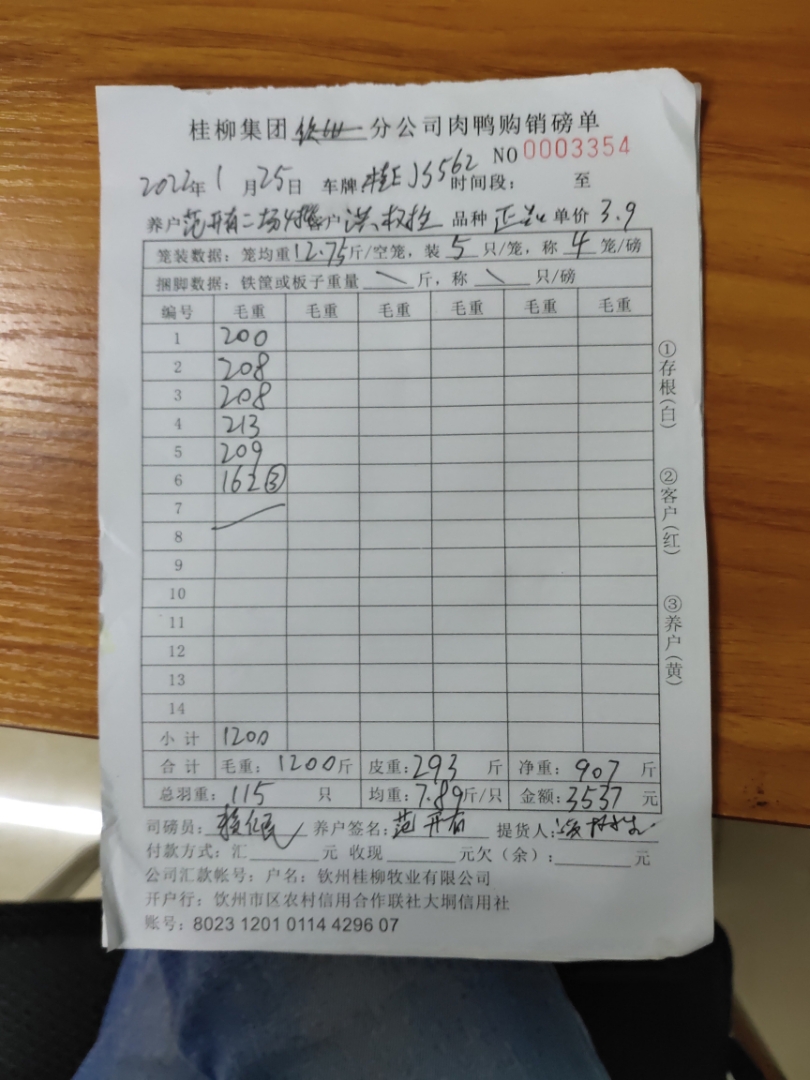 桂柳集团钦州分公司肉鸭购销磅单
NO 0003354
2022年1月25日 车牌桂EJS562时间段: 至
养户范开有二场4棚 户洪 品种 单价3.9
笼装数据:笼均重12.75斤/空笼,装5只/笼,称4笼/磅
捆脚数据:铁筐或板子重量\斤,称\只/磅
编号 毛重 毛重 毛重 毛重 毛重 毛重
1 200
2 208
3 208
4 213
5 209
6 162③
7
8
9
10
11
12
13
14
小计 1200
合计 毛重:1200斤 皮重:293斤 净重:907斤
总羽重:115只 均重:7.89斤/只 金额:3537元
司磅员: 养户签名:范开有 提货人:
付款方式:汇 元 收现 元欠(余): 元
公司汇款帐号:户名:钦州桂柳牧业有限公司
开户行:钦州市区农村信用合作联社大垌信用社
账号:8023 1201 0114 4296 07
①存根(白)
②客户(红)
③养户(黄)